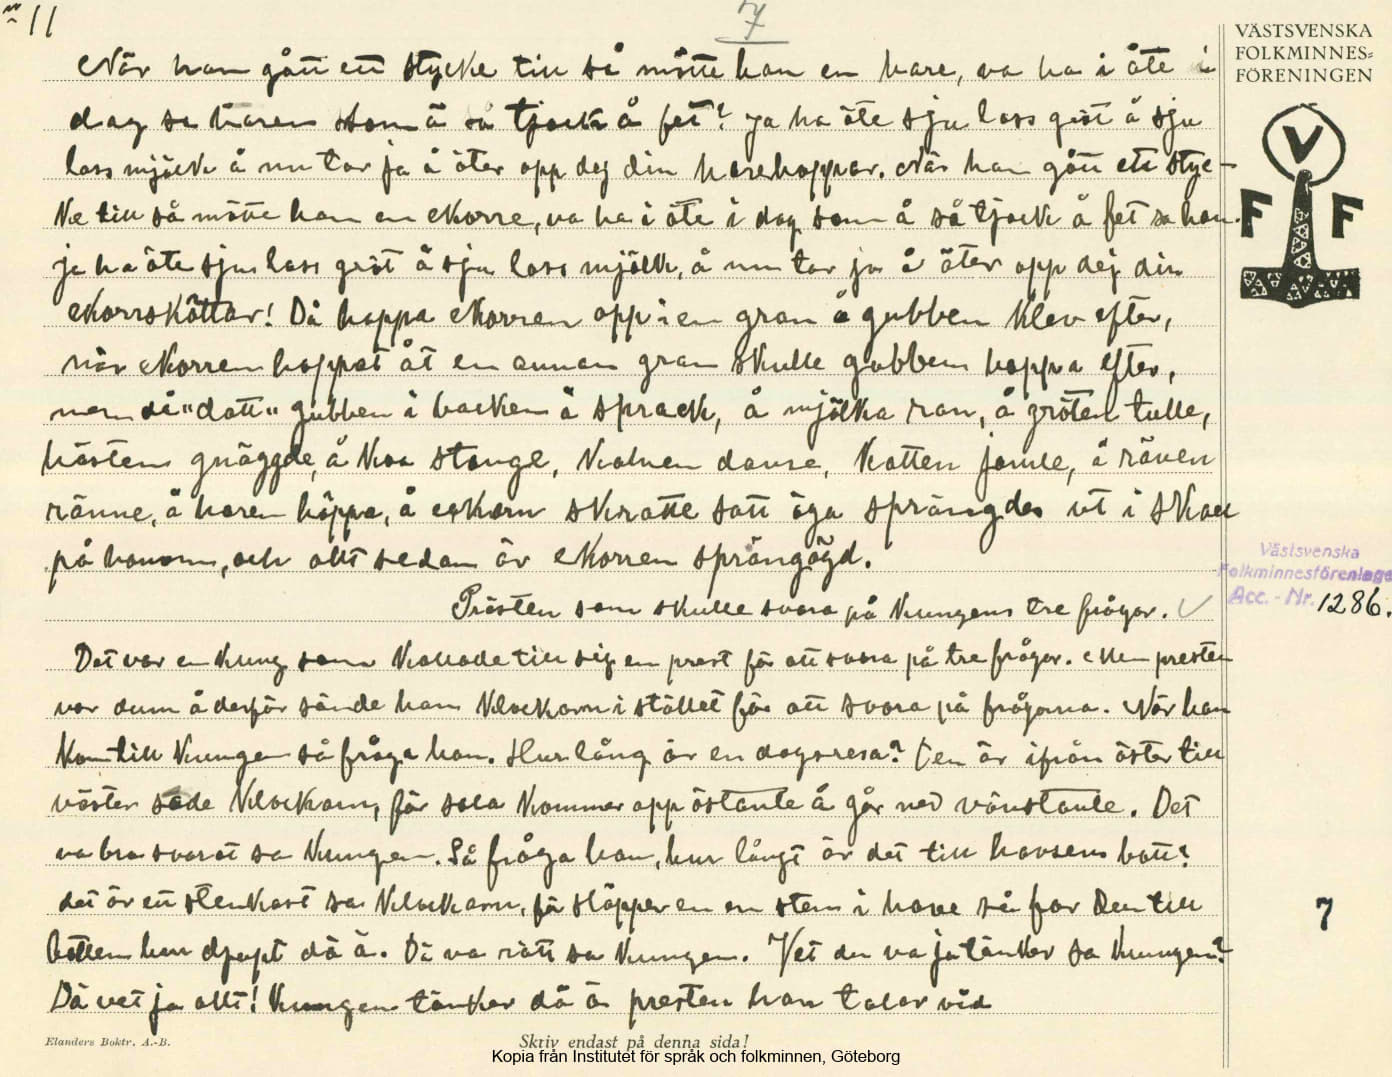 11
7
VÄSTSVENSKA
FOLKMINNES-
FÖRENINGEN
V
F F
När han gått ett stycke till så mötte han en hare, va ha i äte i
dag sa haren som ä så tjock å fet? ja ha äte sju lass gröt å sju
lass mjölk å nu tar ja å äter opp dej din harehoppar. När han gått ett styc-
ke till så mötte han en ekorre, va ha i äte i dag som ä så tjock å fet sa han.
ja ha äte sju lass gröt å sju lass mjölk, å nu tar ja å äter opp dej din
ekorrskättar! Då hoppa ekorren opp i en gran å gubben klev efter,
när ekorren hoppat åt en annan gran skulle gubben hoppa efter,
men då "datt" gubben i backen å sprack, å mjölka ran, å gröten tulle,
hästen gnäggde, å koa stange, kalven danse, katten jamle, å räven
ränne, å haren hoppa, å eckorn skratte satt öga sprängdes ut i skall
på honom, och allt sedan är ekorren sprängögd.
Prästen som skulle svara på kungens tre frågor.
Det var en kung som kallade till sig en prest för att svara på tre frågor. Men presten
var dum å därför sände hans klockarn i stället för att svara på frågorna. När han
kom till kungen så fråga han. Hur lång är en dagsresa? Den är ifrån öster till
väster sade klockarn, för sola kommer opp östante å går ned vänstante. Det
va bra svarat sa kungen. Så fråga han, hur långt är det till havsens batt?
det är ett stenkast sa klockarn, för släpper en en sten i have så far den till
botten hur djupt dä ä. Dä va rätt sa kungen. Vet du va ja tänker sa kungen?
Dä vet ja allt! kungen tänker dä ä presten han talar vid
Västsvenska
Folkminnesföreninge
Acc. - Nr. 1286.
7
Elanders Boktr. A.-B.
Skriv endast på denna sida!
Kopia från Institutet för språk och folkminnen, Göteborg